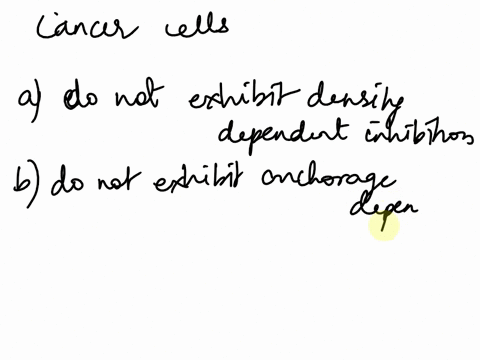 Cancer cells
a) do not exhibit density
dependent inhibition
b) do not exhibit anchorage
depen